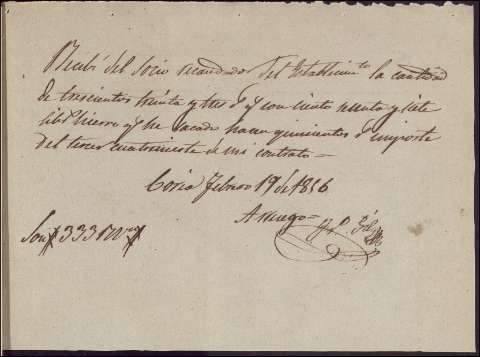 Recibí del Socio recaudador del Establecimto la cantidad
de trescientos treinta y tres r y con ciento y siete
hierro y he sacado hacen quinientos r importe
del tercer cuatrimestre de mi contrato =
Coria Febrero 19 de 1856
A ruego =
Son 333